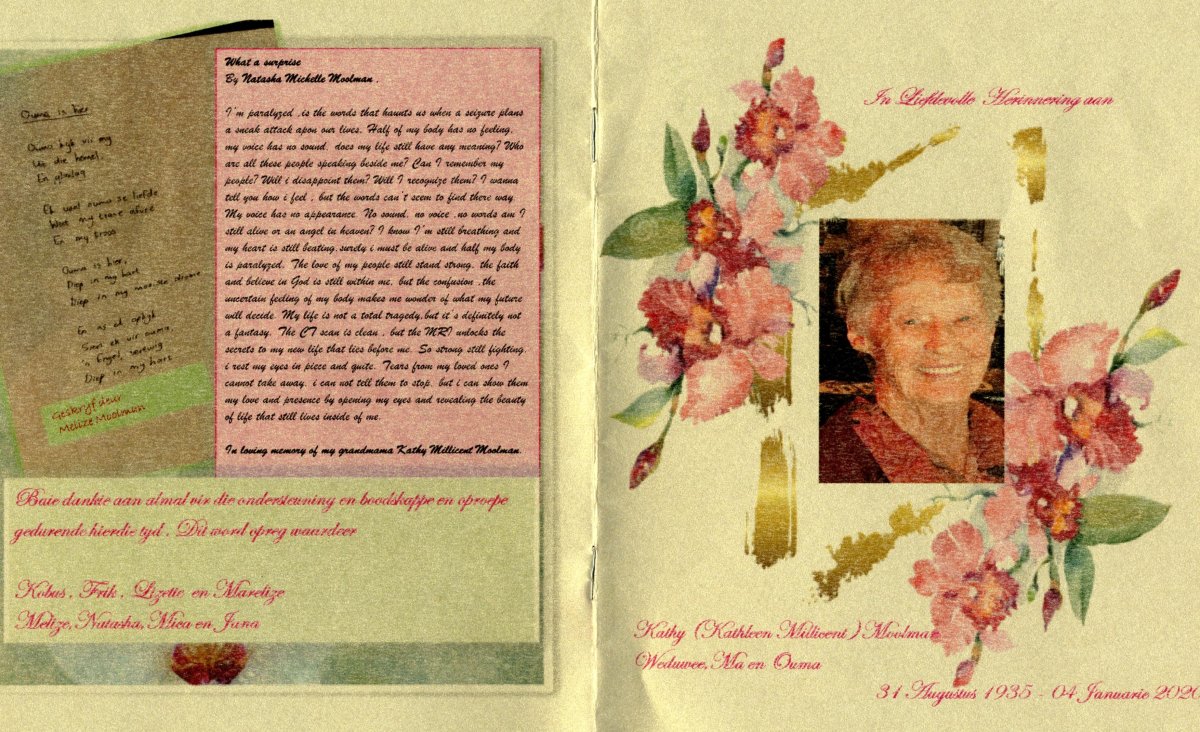 Ouma is hier
Ouma kyk vir my
Uit die hemel,
En glimlag
Ek voel ouma se liefde
Want my trane afvee
En my troos
Ouma is hier,
Diep in my hart
Diep in my
En as ek opkyk
Sien ek vir ouma,
'n Engel, vereewig
Diep in my hart
Geskryf deur
Melize Moolman
What a surprise
By Natasha Michelle Moolman .
I'm paralyzed ,is the words that haunts us when a seizure plans
a sneak attack apon our lives. Half of my body has no feeling,
my voice has no sound, does my life still have any meaning? Who
are all these people speaking beside me? Can I remember my
people? Will i disappoint them? Will I recognize them? I wanna
tell you how i feel , but the words can't seem to find there way.
My voice has no appearance. No sound, no voice ,no words am I
still alive or an angel in heaven? I know I'm still breathing and
my heart is still beating,surely i must be alive and half my body
is paralyzed. The love of my people still stand strong, the faith
and believe in God is still within me, but the confusion ,the
uncertain feeling of my body makes me wonder of what my future
will decide. My life is not a total tragedy,but it's definitely not
a fantasy. The CT scan is clean , but the MRI unlocks the
secrets to my new life that lies before me. So strong still fighting,
i rest my eyes in piece and quite. Tears from my loved ones I
cannot take away, i can not tell them to stop, but i can show them
my love and presence by opening my eyes and revealing the beauty
of life that still lives inside of me.
In loving memory of my grandmama Kathy Millicent Moolman.
Baie dankie aan almal vir die ondersteuning en boodskappe en oproepe
gedurende hierdie tyd . Dit word opreg waardeer
Kobus , Frik , Lizette en Marelize
Melize, Natasha, Mica en Juna
In Liefdevolle Herinnering aan
Kathy (Kathleen Millicent) Moolman
Weduwee, Ma en Ouma
31 Augustus 1935 - 04 Januarie 2020